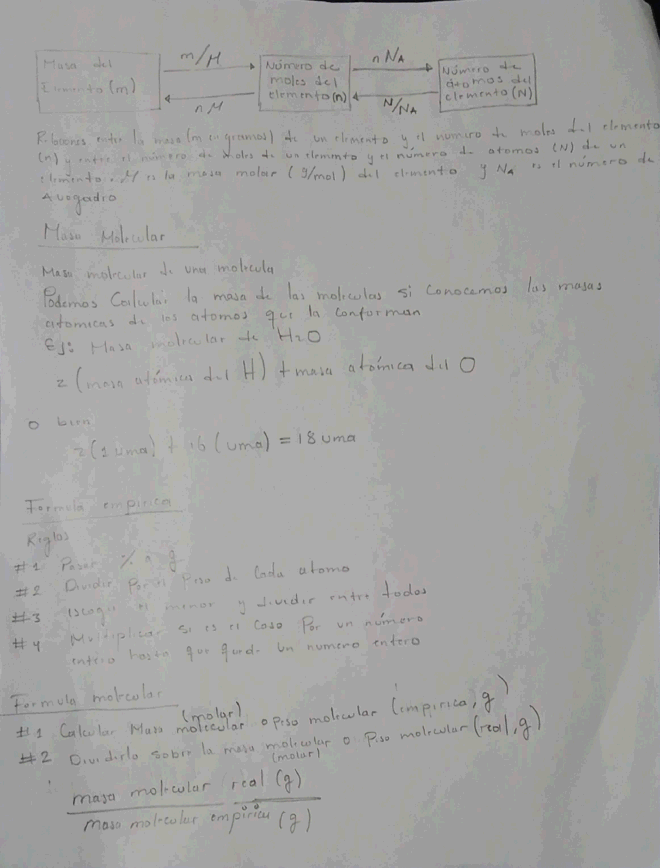 Masa del
Elemento (m)
m/M
nM
Número de
moles del
elemento(n)
nNA
N/NA
Número de
átomos del
elemento (N)
entre la masa (m en gramos) de un elemento y el número de moles del elemento
(n) y entre el número de moles de un elemento y el número de atomos (N) de un
elemento. M es la masa molar (g/mol) del elemento y NA es el número de
Avogadro
Masa Molecular
Masa molecular de una molecula
Podemos Calcular la masa de las moleculas si conocemos las masas
atomicas de los atomos que la conforman
Ej: Masa molecular de H2O
2 (masa atómica del H) + masa atómica del O
o bien
2(1 uma) + 16 (uma) = 18 uma
Formula empirica
Reglas
#1 Pasar % a g
#2 Dividir por el Peso de Cada atomo
#3 escoger el menor y dividir entre todos
#4 Multiplicar si es el Caso Por un número
entero hasta que quede un numero entero
Formula molecular
#1 Calcular Masa molecular (molar) o peso molecular (empirica, g)
#2 Dividirla sobre la masa molecular o Peso molecular (real, g)
(molar)
masa molecular real (g)
masa molecular empirica (g)